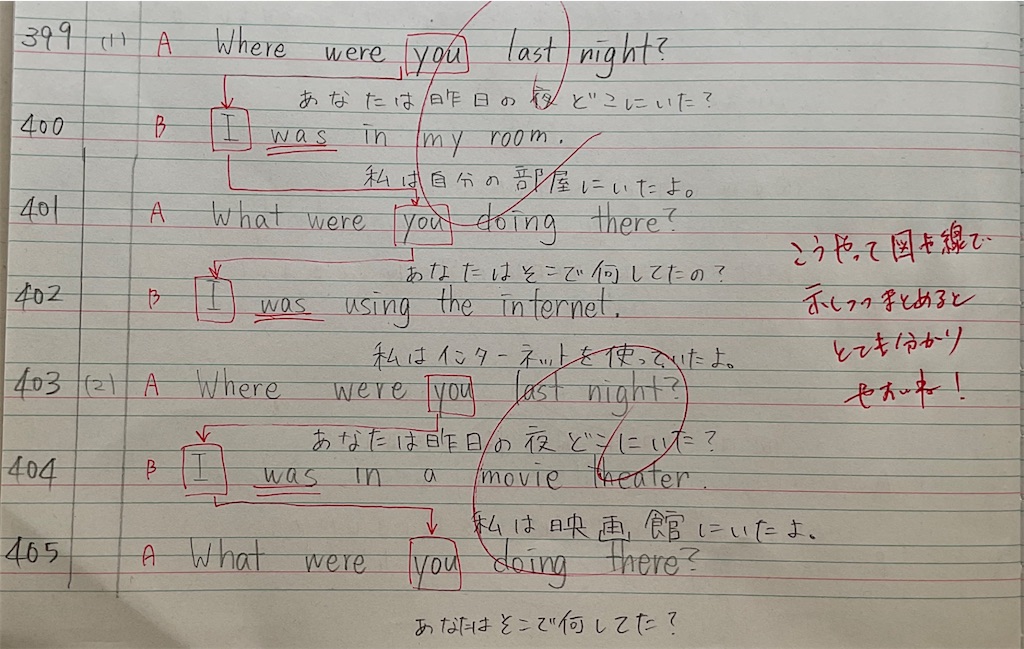 399 (1) A Where were you last night?
あなたは昨日の夜どこにいた？
400 B I was in my room.
私は自分の部屋にいたよ。
401 A What were you doing there?
あなたはそこで何してたの？
402 B I was using the internet.
私はインターネットを使っていたよ。
403 (2) A Where were you last night?
あなたは昨日の夜どこにいた？
404 B I was in a movie theater.
私は映画館にいたよ。
405 A What were you doing there?
あなたはそこで何してた？
こうやって図や線で
示しつつまとめると
とても分かり
やすいね！